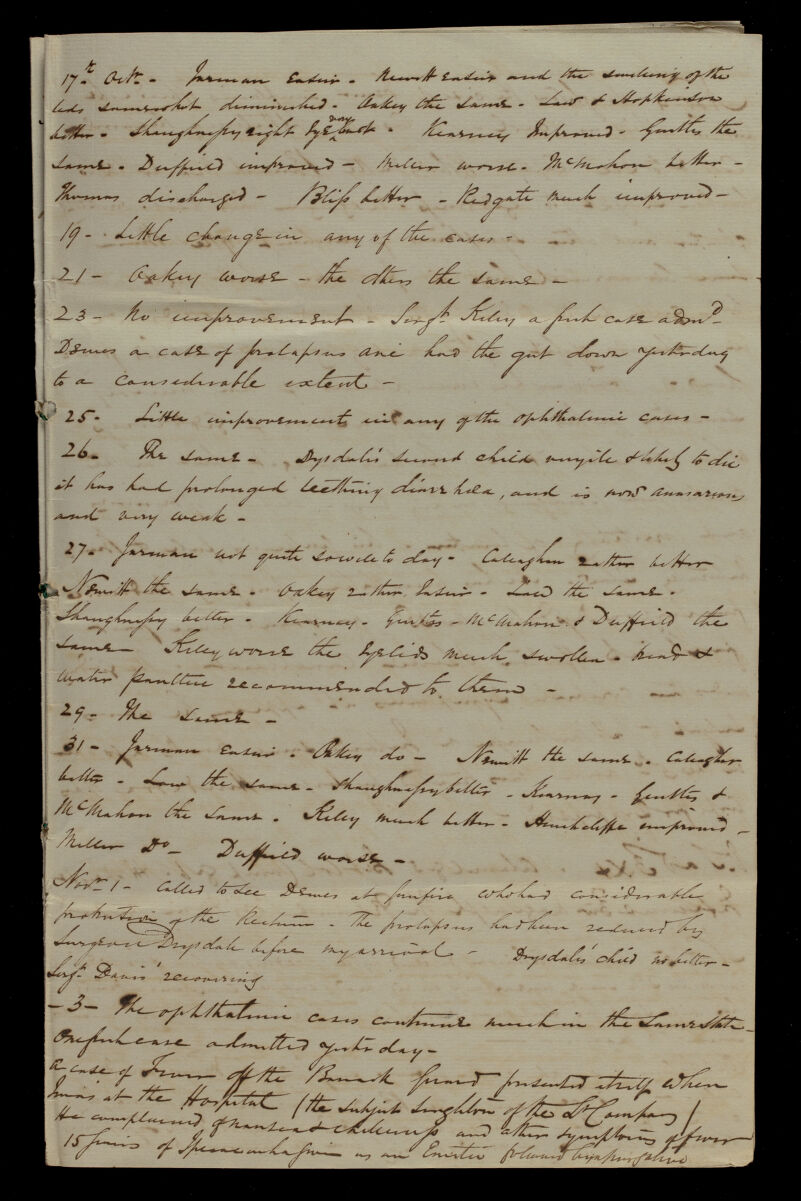 17th Octr - Jarman Easier - Newitt easier and the swelling of the
lids somewhat diminished - Oakey the same - Law & Hopkinson
better - Shaughnessy right Eye very - Kearney Improved - Gentles the
same - Duffield improved - Miller worse - McMahon better -
Thomas discharged - Bliss better - Redgate much improved -
19 - Little change in any of the cases -
21 - Oakey worse - the others the same -
23 - No improvement - Sergt Kiley a fresh case admd -
Dewes a case of prolapsus ani had the gut down yesterday
to a considerable extent -
25 - Little improvement in any of the ophthalmic cases -
26 - The same - Drysdale's second child & likely to die
it has had prolonged teething diarrhœa, and is now
and very weak -
27 - Jarman not quite so well to day - Caleaghan rather better
Newitt the same - Oakey rather Easier - Law the same -
Shaughnessy better - Kearney - Gentles - McMahon & Duffield the
same - Kiley worse the Eyelids much swollen - bread &
water poultice recommended to them -
29 - The same -
31 - Jarman easier - Oakey do - Newitt the same - Caleaghan
better - Law the same - Shaughnessy better - Kearney - Gentles &
McMahon the Same - Kiley much better - Hinchcliffe improved -
Miller Do - Duffield worse -
Novr 1 - Called to see Dewes at who had considerable
protrusion of the Rectum - The prolapsus had been reduced by
Surgeon Drysdale before my arrival - Drysdale's child no better -
Sergt Davis' recovering
- 3 - The ophthalmic cases continue much in the Same State -
One fresh case admitted yesterday -
A case of Fever off the Barrack Guard presented itself when
I was at the Hospital (the subject Singleton of the Lt Company)
He complained of nausea & chilliness and other symptoms of fever
15 Grains of Ipecacuanha given as an Emetic followed by a purgative